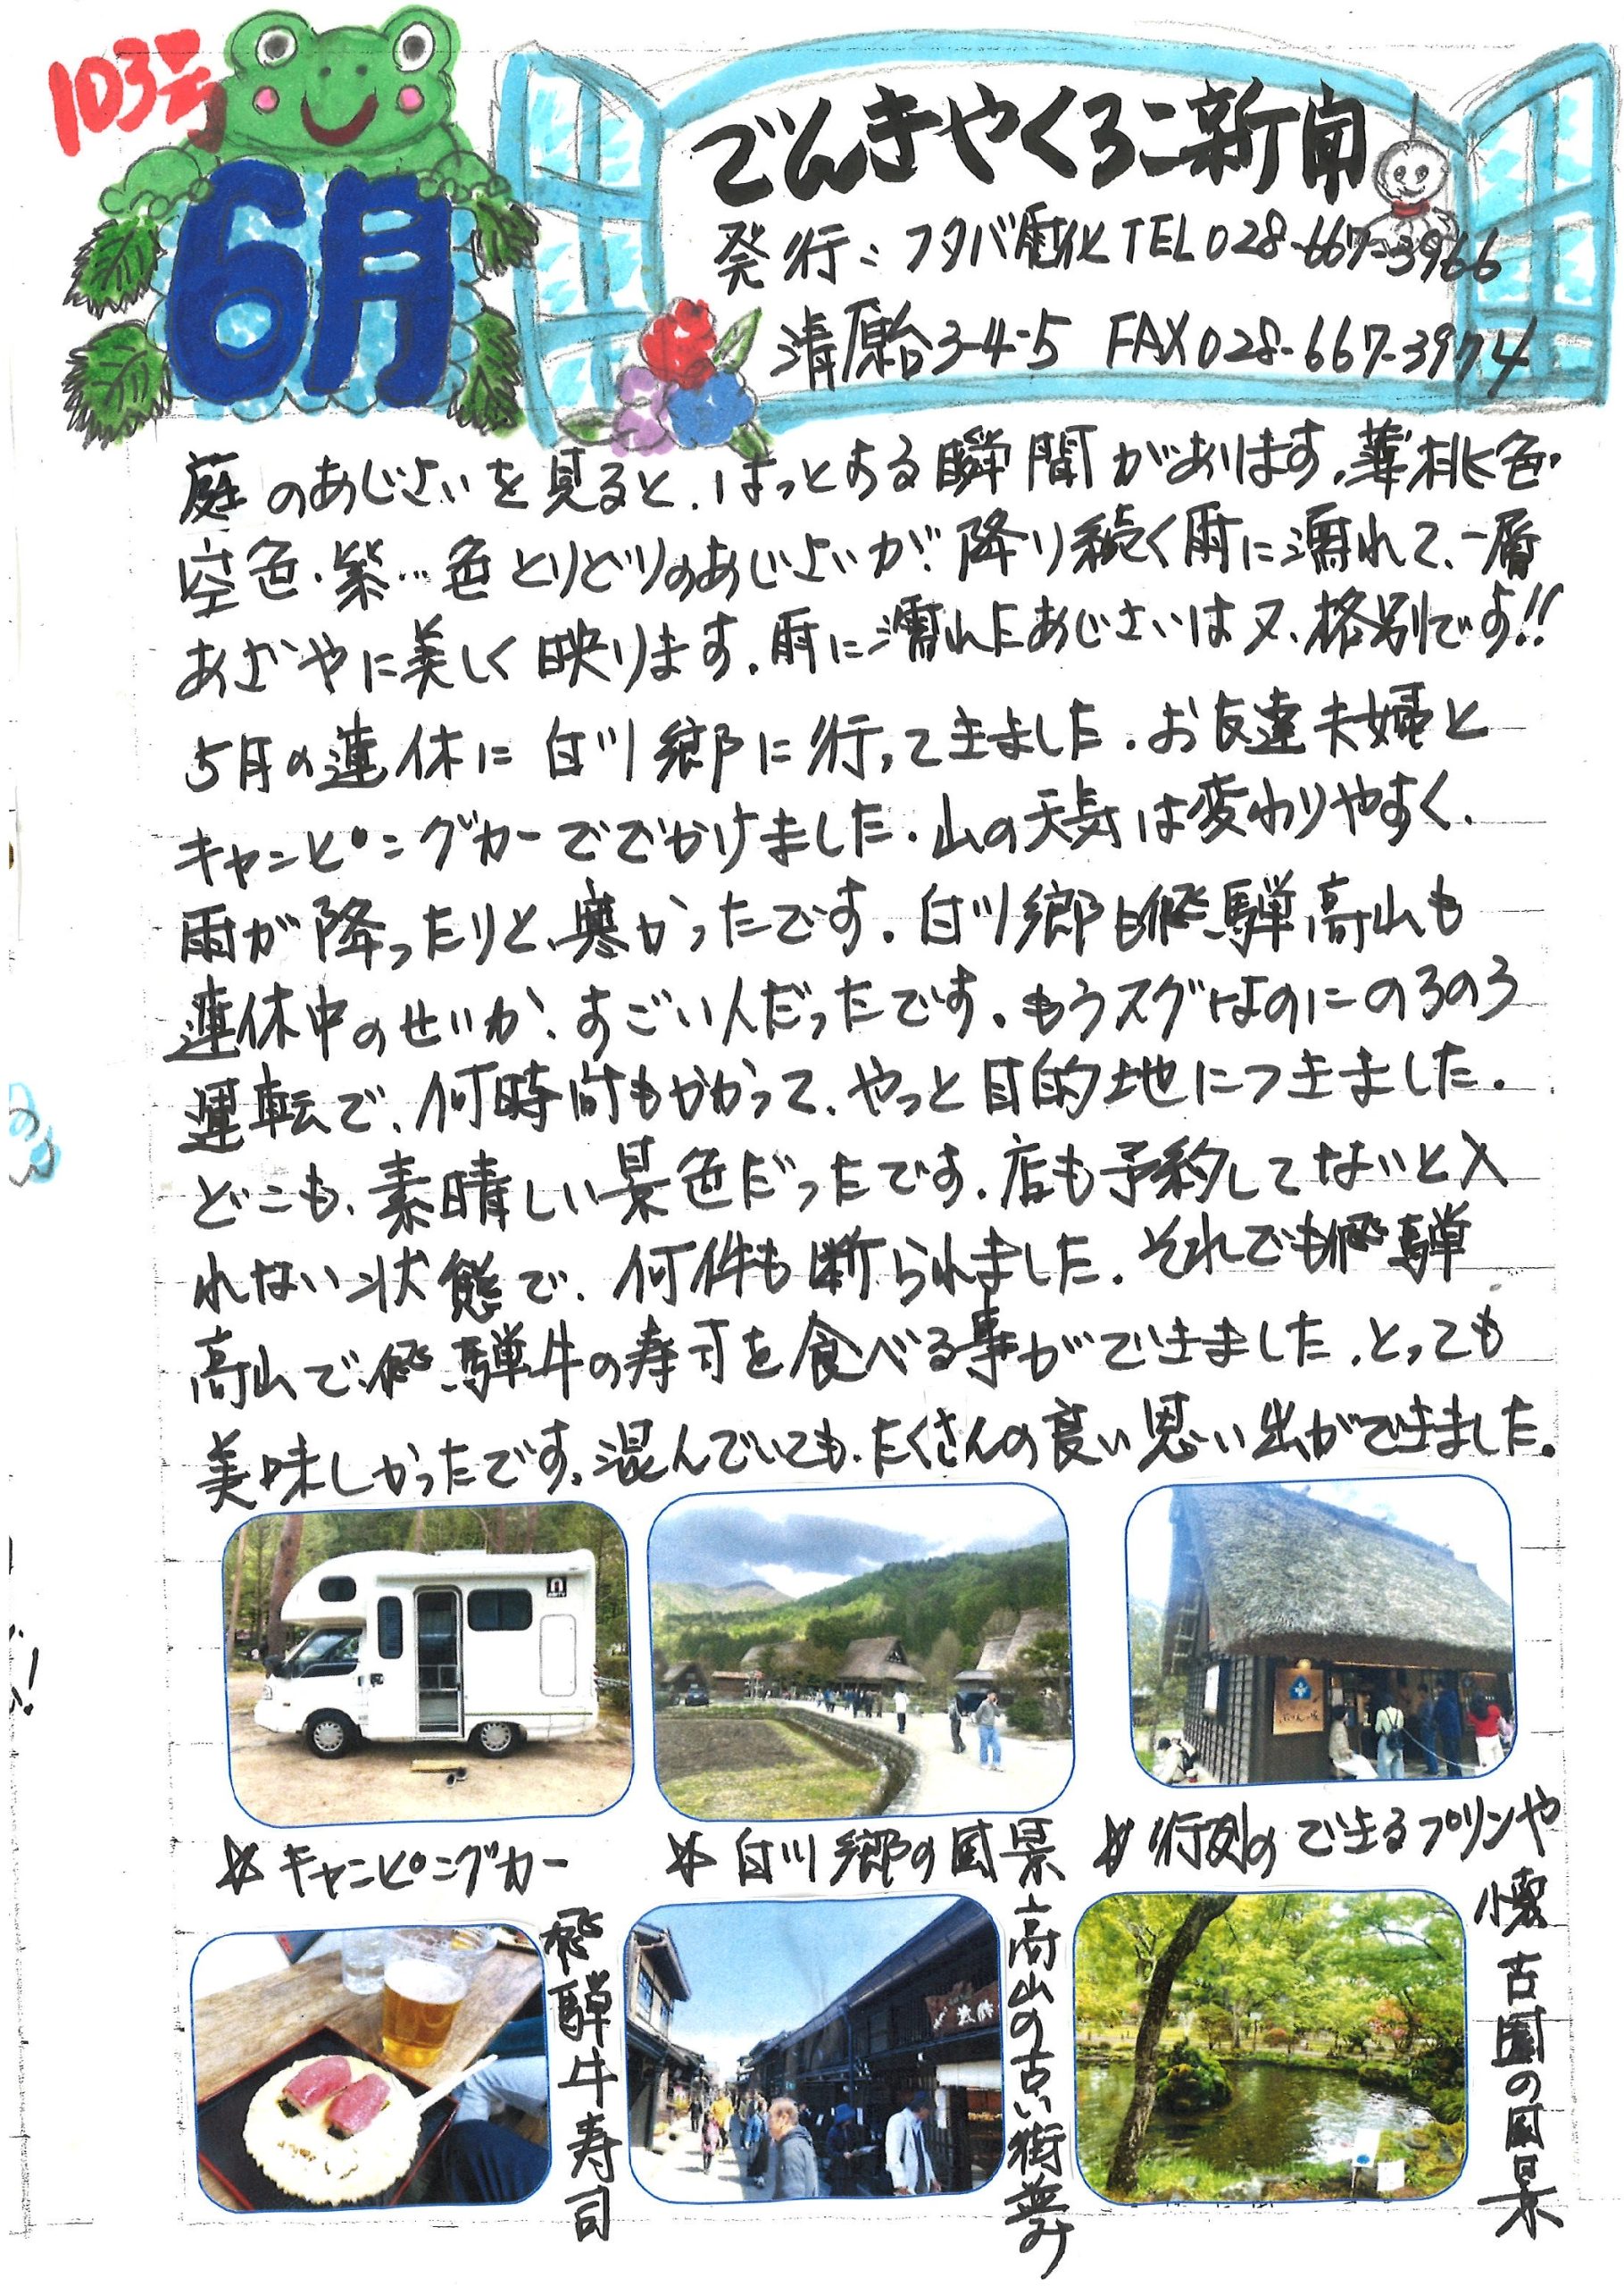 103号
6月
でんきやくろこ新聞
発行:フタバ電化 TEL 028-667-3966
清原台3-4-5 FAX 028-667-3974
庭のあじさいを見ると、はっとする瞬間があります。薄桃色・
空色・紫…色とりどりのあじさいが、降り続く雨に濡れて、一層
あざやに美しく映ります。雨に濡れたあじさいは又、格別です!!
5月の連休に白川郷に行って来ました。お友達夫婦と
キャンピングカーででかけました。山の天気は変わりやすく、
雨が降ったりと、寒かったです。白川郷も飛騨高山も
連休中のせいか、すごい人だったです。もうスグなのにのろのろ
運転で、何時間もかかって、やっと目的地につきました。
どこも、素晴しい景色だったです。店も予約してないと入
れない状態で、何件も断られました。それでも飛騨
高山で、飛騨牛の寿司を食べる事ができました。とっても
美味しかったです。混んでいても、たくさんの良い思い出ができました。
☆キャンピングカー
☆白川郷の風景
☆行列のできるプリンや
飛騨牛寿司
高山の古い街並み
懐古園の風景